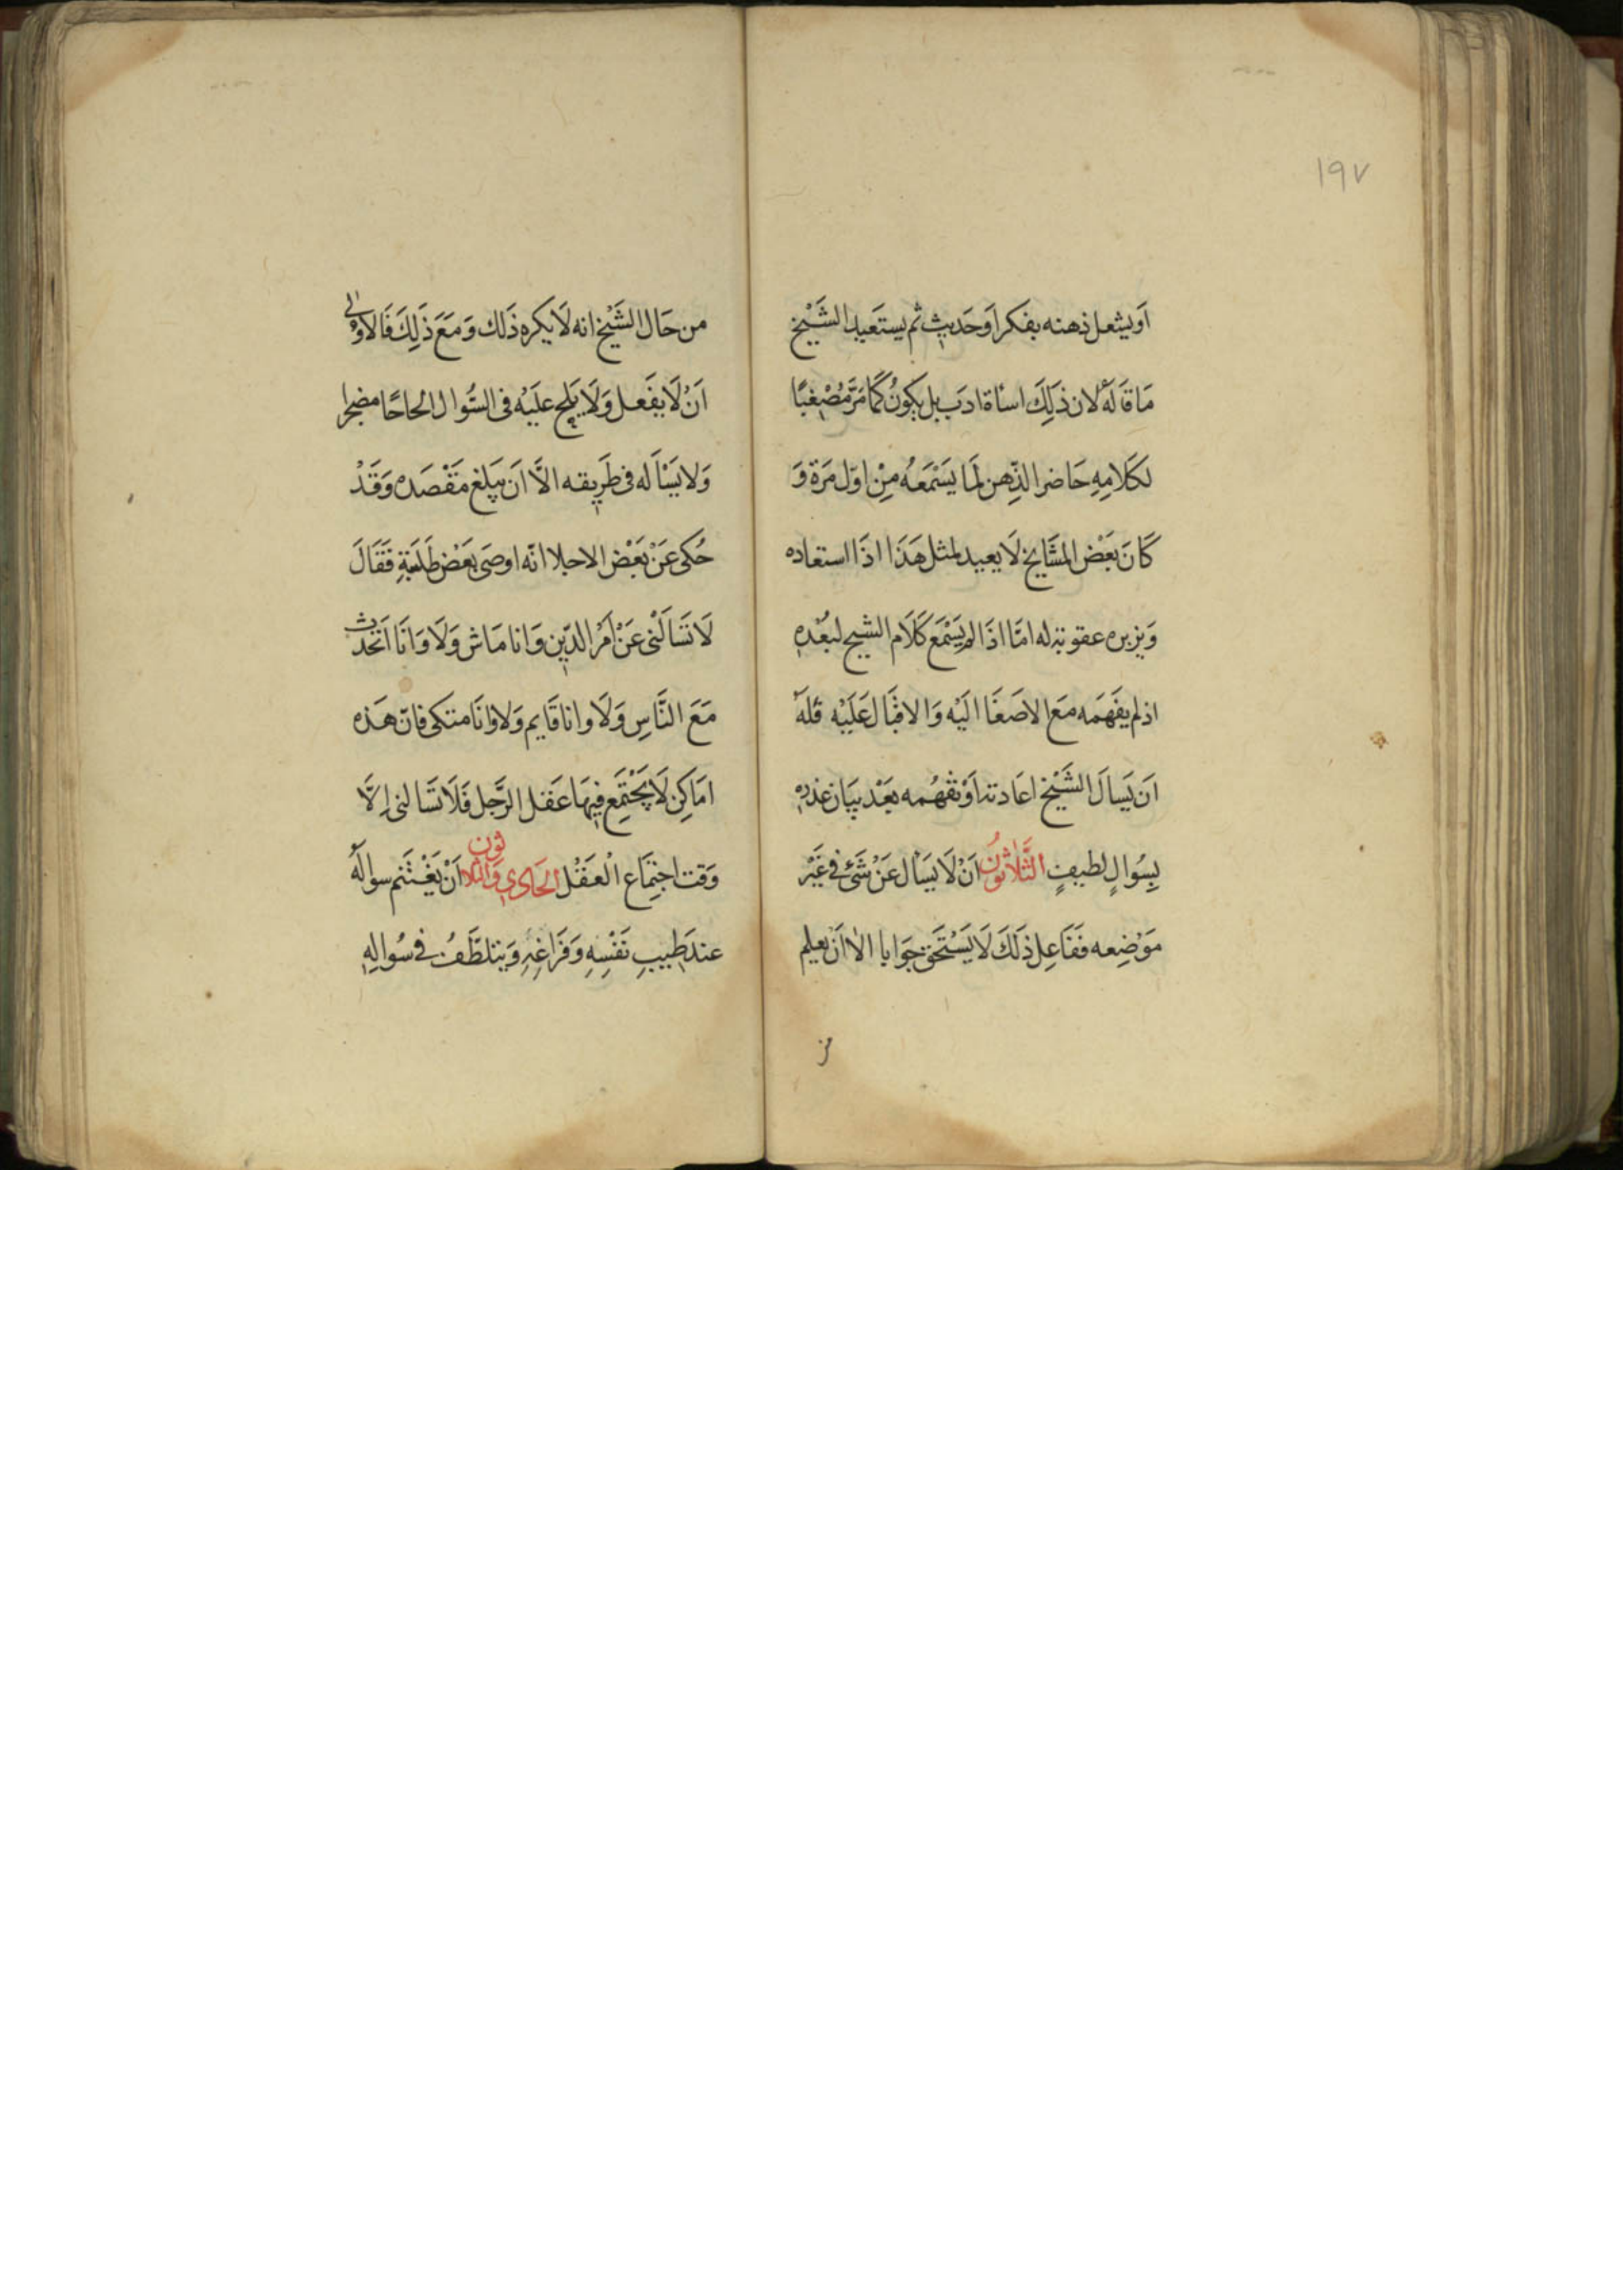 ١٩٧
اَويشعل ذهنه بفكر اَو حَديث ثم يستَعيد الشَيْخ
مَا قَالَهُ لان ذَلِكَ اسأة ادَب بل يَكونُ كَمَا مَرَّ مُصْغيًا
لكَلَامِهِ حَاضر الذِّهن لمَا يَسْمَعُه مِنْ اوّل مَرّة وَ
كَانَ بَعْض المشَايخ لَا يعيد لمثل هَذَا اذَا استعاده
وَيزبره عقوبة له امّا اذَا لم يَسْمَع كَلَام الشيخ لبُعْدِهِ
اذ لم يفَهَمه مَعَ الاصَغَا اليَه وَالاقبَال عَلَيْه فلَهُ
اَن يَسالَ الشَيْخ اعَادته اَوْ تفهُمه بَعْد بيَان عذرِهِ
بِسُوالٍ لطيفٍ الثَّلَاثُونَ اَنْ لَا يَسْأل عَنْ شَئ في غَيْر
مَوْضِعه ففَاعِل ذلَكَ لَا يَسْتَحَق جَوَابا الا اَنْ يعلم
من
من حَال الشَيْخ انه لَا يكره ذَلك وَمَعَ ذَلِكَ فَالاوْلى
اَنْ لَا يفَعَل وَلَا يَلِح عليَه فى السُّوال الحاحًا مضجرا
وَلا يَسْأَله فى طَرِيقه الاَّ اَن يَبلغ مَقْصَده وَقَدْ
حُكى عَنْ بَعْض الاجلا انّه اوصَى بَعْض طَلَبَةٍ فَقَالَ
لَا تَسَالْنى عَنْ اَمْر الدّين وَانا مَاش وَلَا وَانَا اَتحَدث
مَعَ النَّاسِ وَلَا وانا قَايم وَلا وَانَا متكى فانّ هَذه
امَاكِن لَا يَجْتَمِع فِيهَا عَقل الرَّجل فَلَا تَسَالنى اِلَّا
وَقت اجتِمَاع الْعَقْل الحَادي وَالثلاثون اَنْ يَغْتَنم سوالَهُ
عند طِيبِ نَفْسِهِ وَفَرَاغِهِ وَيتلطَّفُ في سُوالِهِ